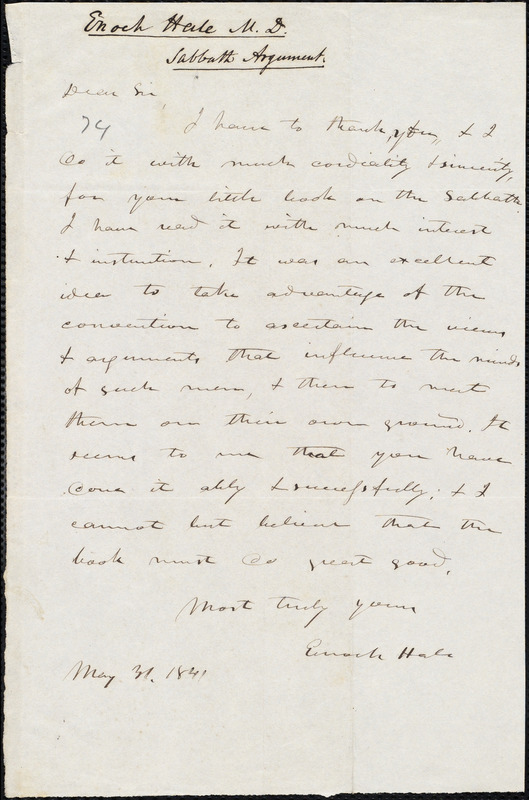 Enoch Hale M. D.
Sabbath Argument.
Dear Sir,
74
I have to thank you, & I
do it with much cordiality & sincerity,
for your little book on the Sabbath.
I have read it with much interest
& instruction. It was an excellent
idea to take advantage of the
convention to ascertain the views
& arguments that influence the minds
of such men, & then to meet
them on their own ground. It
seems to me that you have
done it ably & successfully; & I
cannot but believe that the
book must do great good.
Most truly yours
Enoch Hale
May 31. 1841